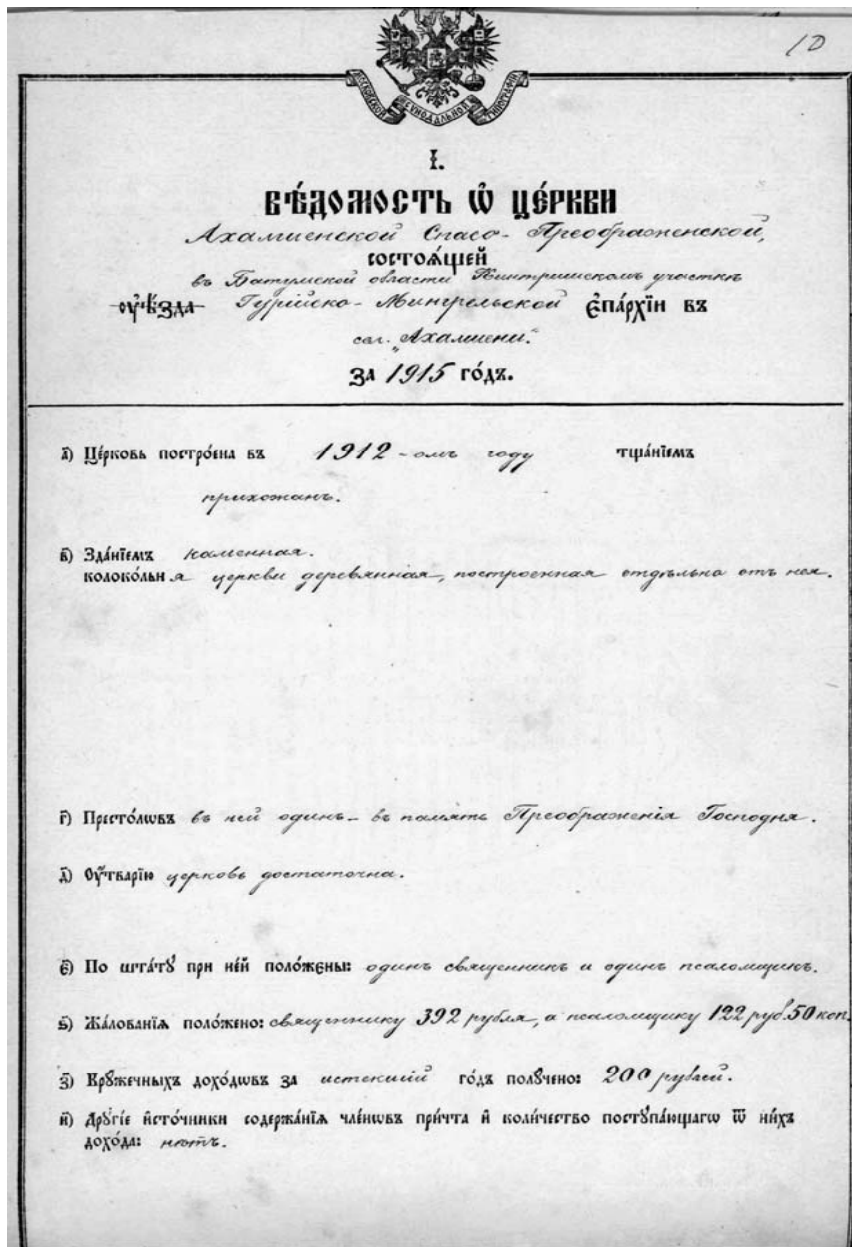 10
МОСКОВСКОЙ СѴНОДАЛЬНОЙ ТИПОГРАФІИ
І.
ВѢ́ДОМОСТЬ Ѡ҆ ЦЕ́РКВИ
Ахалшенской Спасо-Преображенской,
состоѧ́щей
въ Батумской области Кинтришскомъ участкѣ
ᲂу҆ѣ́зда Гурійско-Мингрельской є҆па́рхїи въ
сел. "Ахалшени."
за 1915 го́дъ.
а҃) Це́рковь построена въ 1912-омъ году тща́нїемъ
прихожанъ.
в҃) Зда́нїемъ каменная.
колоко́льня церкви деревянная, построенная отдѣльно отъ нея.
г҃) Престо́лѡвъ въ ней одинъ - въ память Преображенія Господня.
д҃) Оу҆́тварїю церковь достаточна.
є҃) По шта́тꙋ при не́й поло́жєны: одинъ священникъ и одинъ псаломщикъ.
ѕ҃) Жа́лованїѧ поло́жено: священнику 392 рубля, а псаломщику 122 руб. 50 коп.
з҃) Крꙋ́жечныхъ дохо́дѡвъ за истекшій го́дъ полꙋ́чено: 200 рублей.
и҃) Дрꙋгі́е и҆сто́чники содержа́нїѧ чле́нѡвъ при́чта и҆ коли́чество постꙋпа́ющагѡ ѿ ни́хъ
дохо́да: нѣтъ.